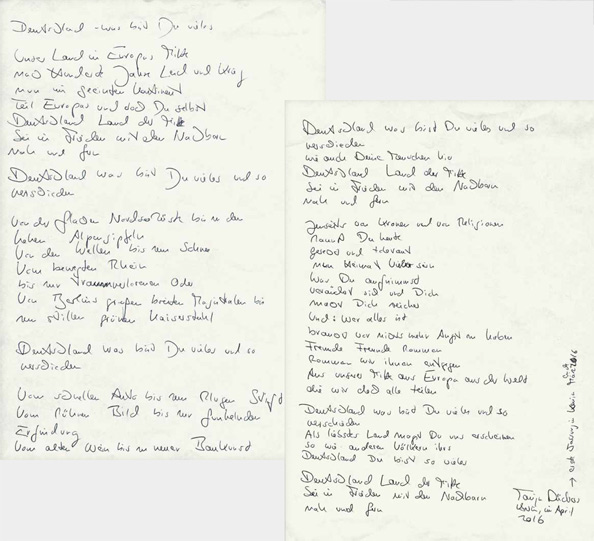 Deutschland - was bist Du vieles
Unser Land in Europas Mitte
nach Jahre Leid und Krieg
nun im geeinten Kontinent
Teil Europas und doch Du selbst
Deutschland Land der Mitte
Sei in Frieden mit den Nachbarn
nah und fern
Deutschland was bist Du vieles und so
verschieden
Von der flachen Nordseeküste bis zu den
hohen Alpengipfeln
Von den Wellen bis zum Schnee
Vom bewegten Rhein
bis zur traumverlorenen Oder
Von Berlins großen breiten Magistralen bis
zum stillen grünen Kaiserstuhl
Deutschland was bist Du vieles und so
verschieden
Vom schnellen Auto bis zum klugen
Vom kühnen Bild bis zur funkelnden
Erfindung
Vom alten Wein bis zu neuer Baukunst
Deutschland was bist Du vieles und so
verschieden
wie auch Deine Menschen hier
Deutschland Land der Mitte
Sei in Frieden mit den Nachbarn
nah und fern
Jenseits von und von Religionen
Du heute
gerecht und tolerant
Heimat sein
Wer Du aufnimmst
verändert sich und Dich
macht Dich reicher
Und: Wer alles ist
braucht vor nichts mehr Angst zu haben
Fremde Fremde kommen
Kommen wir ihnen entgegen
Aus unserer Mitte aus Europa aus der Welt
die wir doch alle teilen
Deutschland was bist Du vieles und so
verschieden
Als liebstes Land magst Du uns erscheinen
so wie anderen Völkern ihres
Deutschland Du bist so vieles
Deutschland Land der Mitte
Sei in Frieden mit den Nachbarn
nah und fern
Tanja Dückers
Berlin, im April
2016
→ erste Fassung in Berlin März 2016